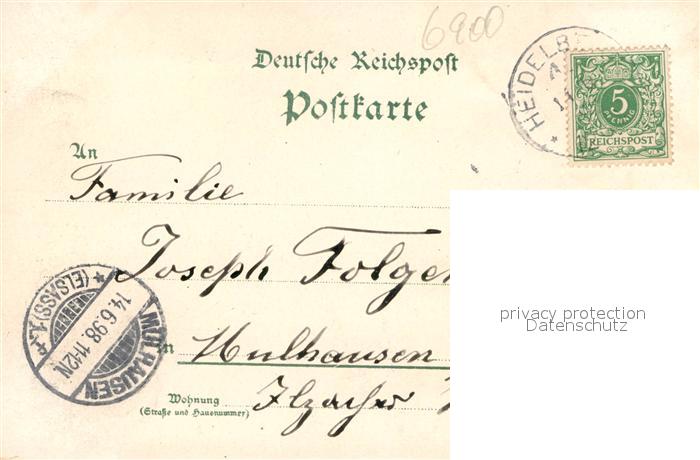 6900
Deutsche Reichspost
Postkarte
HEIDELB
14
5
PFENNIG
REICHSPOST
An
Familie
Joseph Folge
in Mulhausen
Wohnung
(Straße und Hausnummer)
MÜLHAUSEN
14.6.98.11-12N.
(ELSASS) 1.
privacy protection
Datenschutz